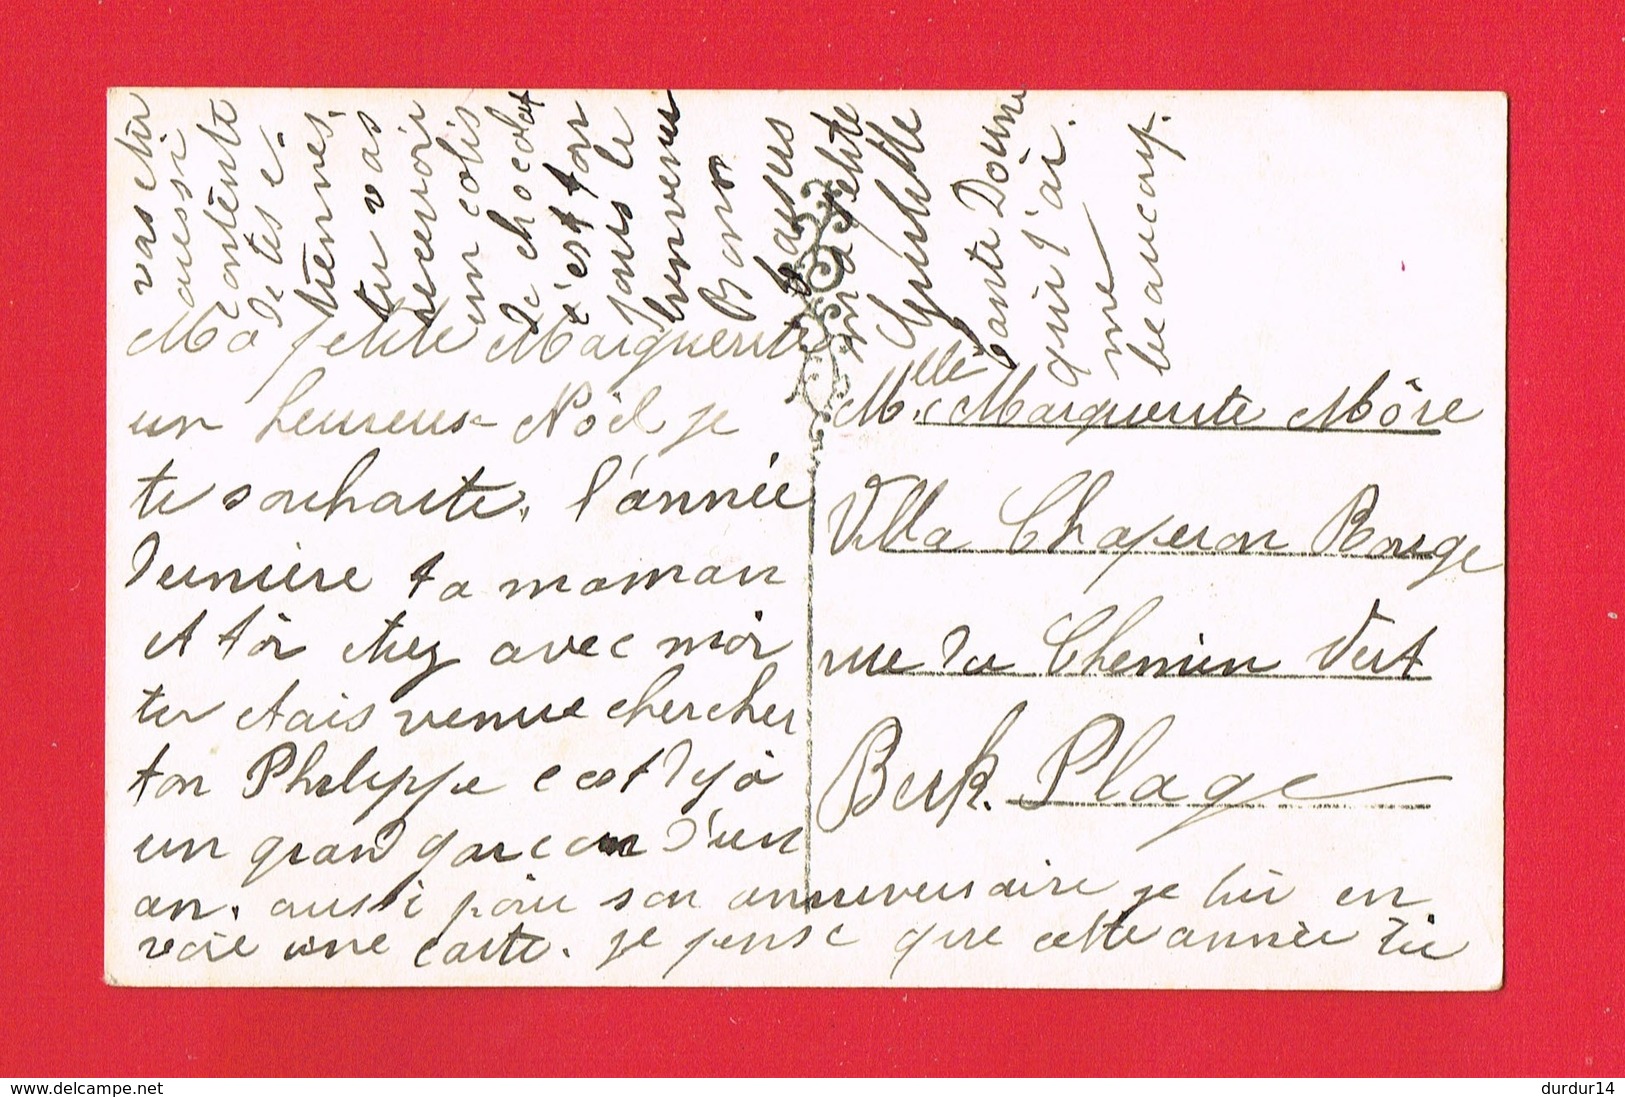 Ma petite Marguerite
un heureux Noël je
te souhaite, l'année
dernière ta maman
et toi étiez avec moi
tu étais venue chercher
ton Philippe c est déjà
un grand garcon d'un
an. aussi pour son anniversaire je lui en
voie une carte. je pense que cette année tu
vas être
aussi
contente
de tes
étiennes.
tu vas
recevoir
un colis
de chocolat
c'est tou
jours le
bienvenu
Bons
baisers
ma petite
Guiguitte
tante Doune
qui t'ai
me
beaucoup.
Mlle Marguerite Môre
Villa Chaperon Rouge
rue du Chemin Vert
Berk. Plage
www.delcampe.net
durdur14